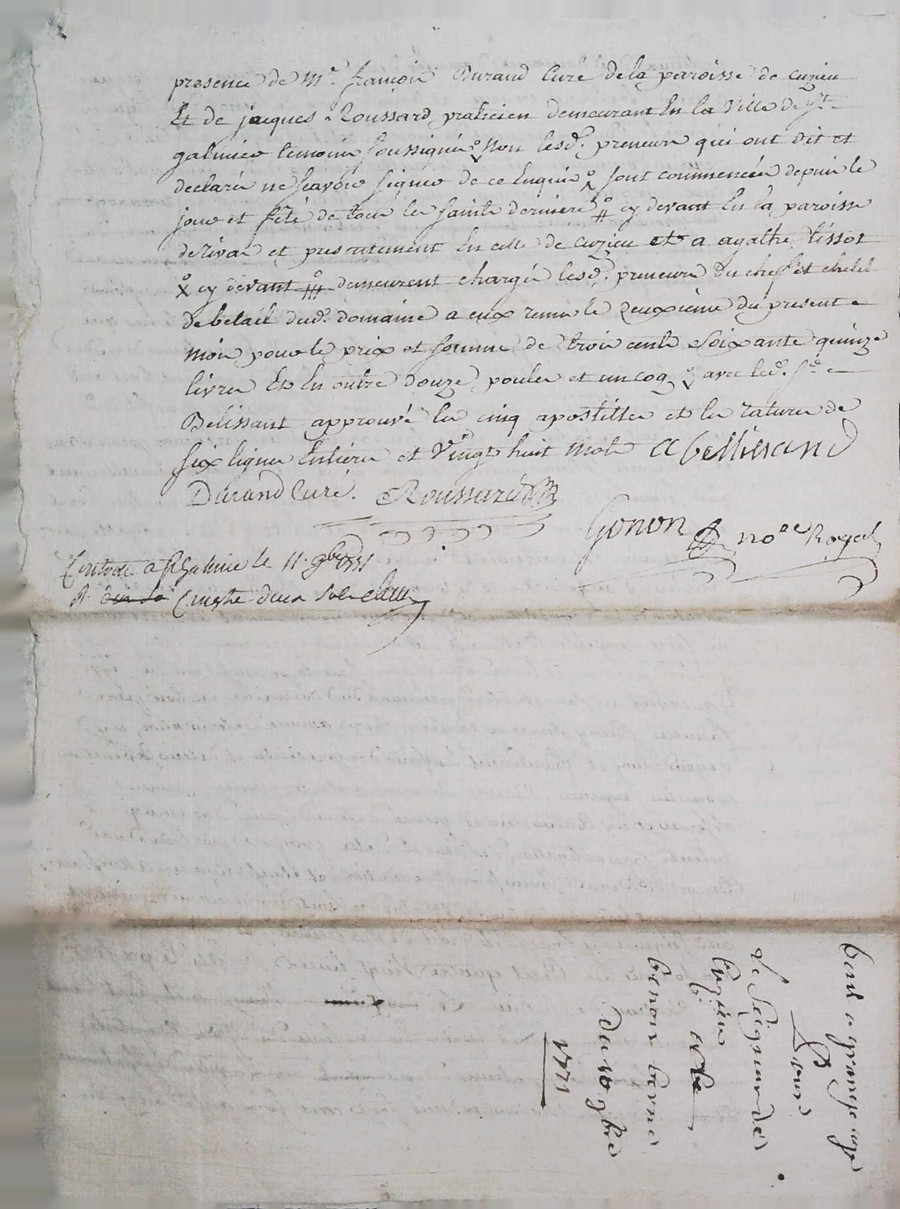 presence de Mr. françois Durand Curé de la paroisse de cuzieu
Et de jacques Roussard praticien demeurant En la Ville de st.
galmier temoins soussignés non lesd. preneurs qui ont dit et
declarés ne sçavoir signer de ce Enquis sont commencées depuis le
jour et fête de tous les saints derniere cy devant En la paroisse
de rivas et presentement En celle de cuzieu et a agathe tissot
cy devant demeurent chargés lesd. preneurs du chef et cheptel
de betail dud. domaine a eux remis le deuxieme du present
mois pour le prix et somme de trois cents soixante quinze
livres Et En outre douze poules et un coq avec led. sr.
Belissant approuvé les cinq apostilles et la rature de
six lignes Entieres et Vingt huit mots a bellissand
Durand Curé. Roussard
Gonon nore Royal
Controlé a st Galmier le 11 gbre 1771
R. cinquante deux sols
bail a grangeage
Pour
Le Seigneur de
Cuzieu
a
benoit berne
du 10 gbre
1771